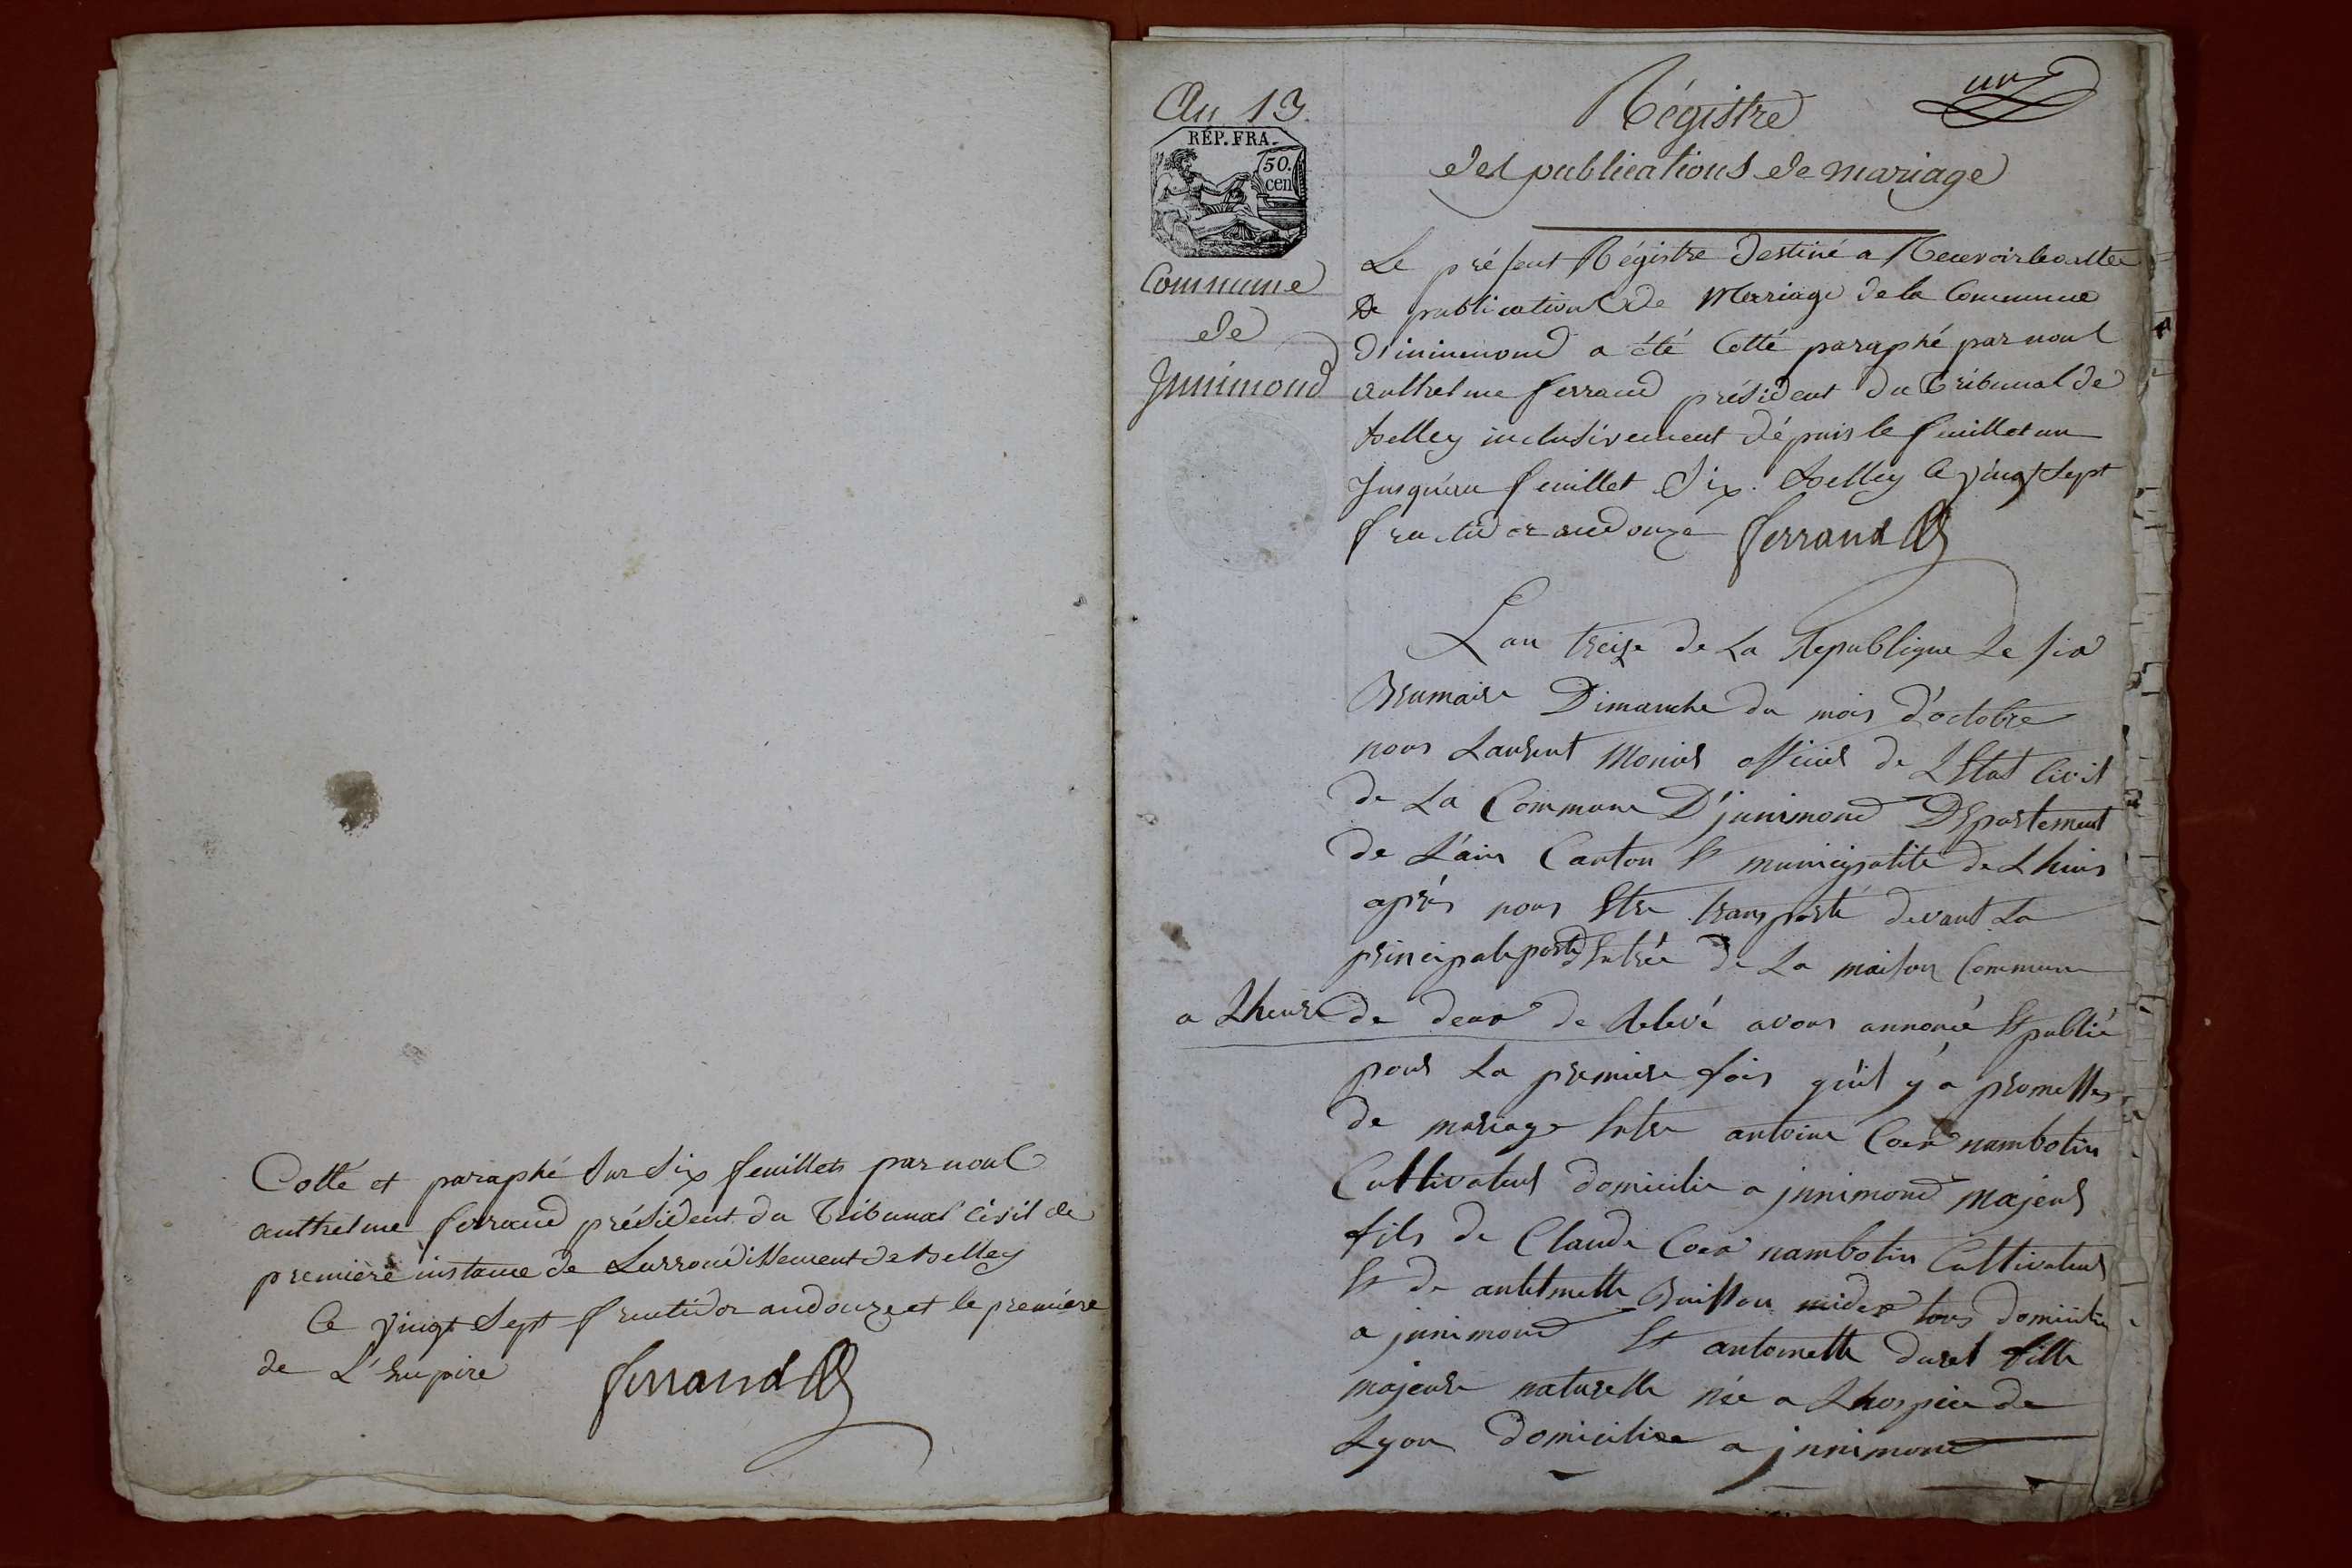 Cotté et paraphé sur six feuillets par nous
anthelme ferrand président du Tribunal Civil de
première instance de Larrondissement de belley
Ce vingt Sept fructidor an douze et le première
de L'Empire ferrand
An 13.
RÉP. FRA.
50.
cen
Commune
de
Junimond
un
Régistre
des publications de mariage
Le présent Régistre destiné a Recevoir les actes
De publications de Marriage de la Commune
d'inimond a été Cotté paraphé par nous
anthelme ferrand président du Tribunal de
belley inclusivement dépuis le feuillet un
Jusqu'au feuillet Six. belley le vingt Sept
fructidor an douze ferrand
Lan treize de La Republique Le six
Brumaire Dimanche du mois d'octobre
nous Laurent Monier officier de L'Etat Civil
de La Commune D'junimond Département
de L'ain Canton Et municipalité de Lhuis
après nous Etre transporté devant La
principale porte d'Entrée de La maison Commune
a Lheure de deux de Relevé avons annoncé Et publié
pour La premiere fois qu'il y a promesses
de mariage Entre antoine Coux nambotin
Cultivateur domicilié a junimond majeur
fils de Claude Coux nambotin Cultivateur
Et de antelmette Buisson tous domicilié
a junimond Et antoinette duret fille
majeure naturelle née a Lhospice de
Lyon domiciliée a junimond